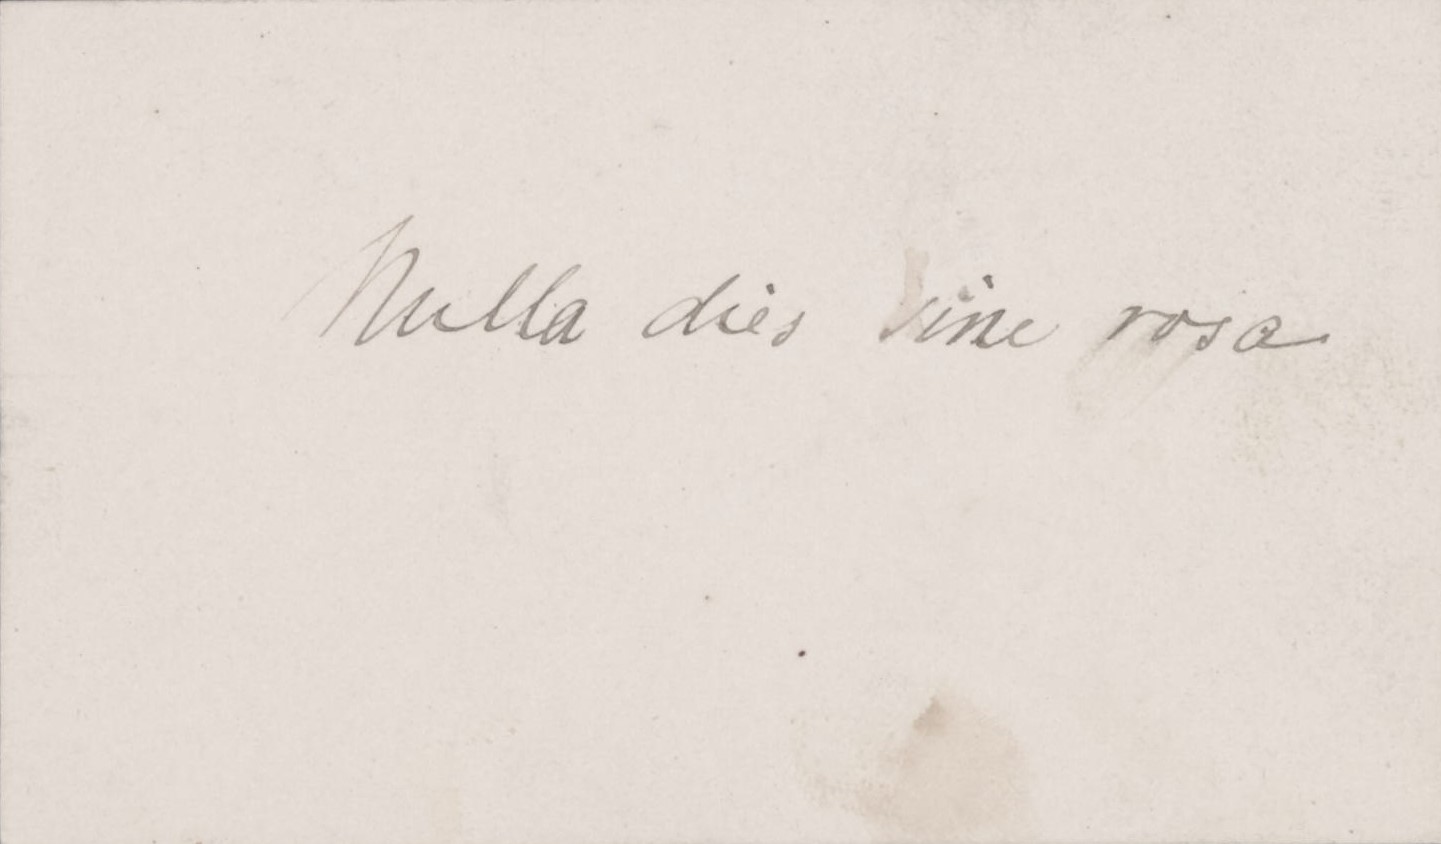 Nulla dies sine rosa.